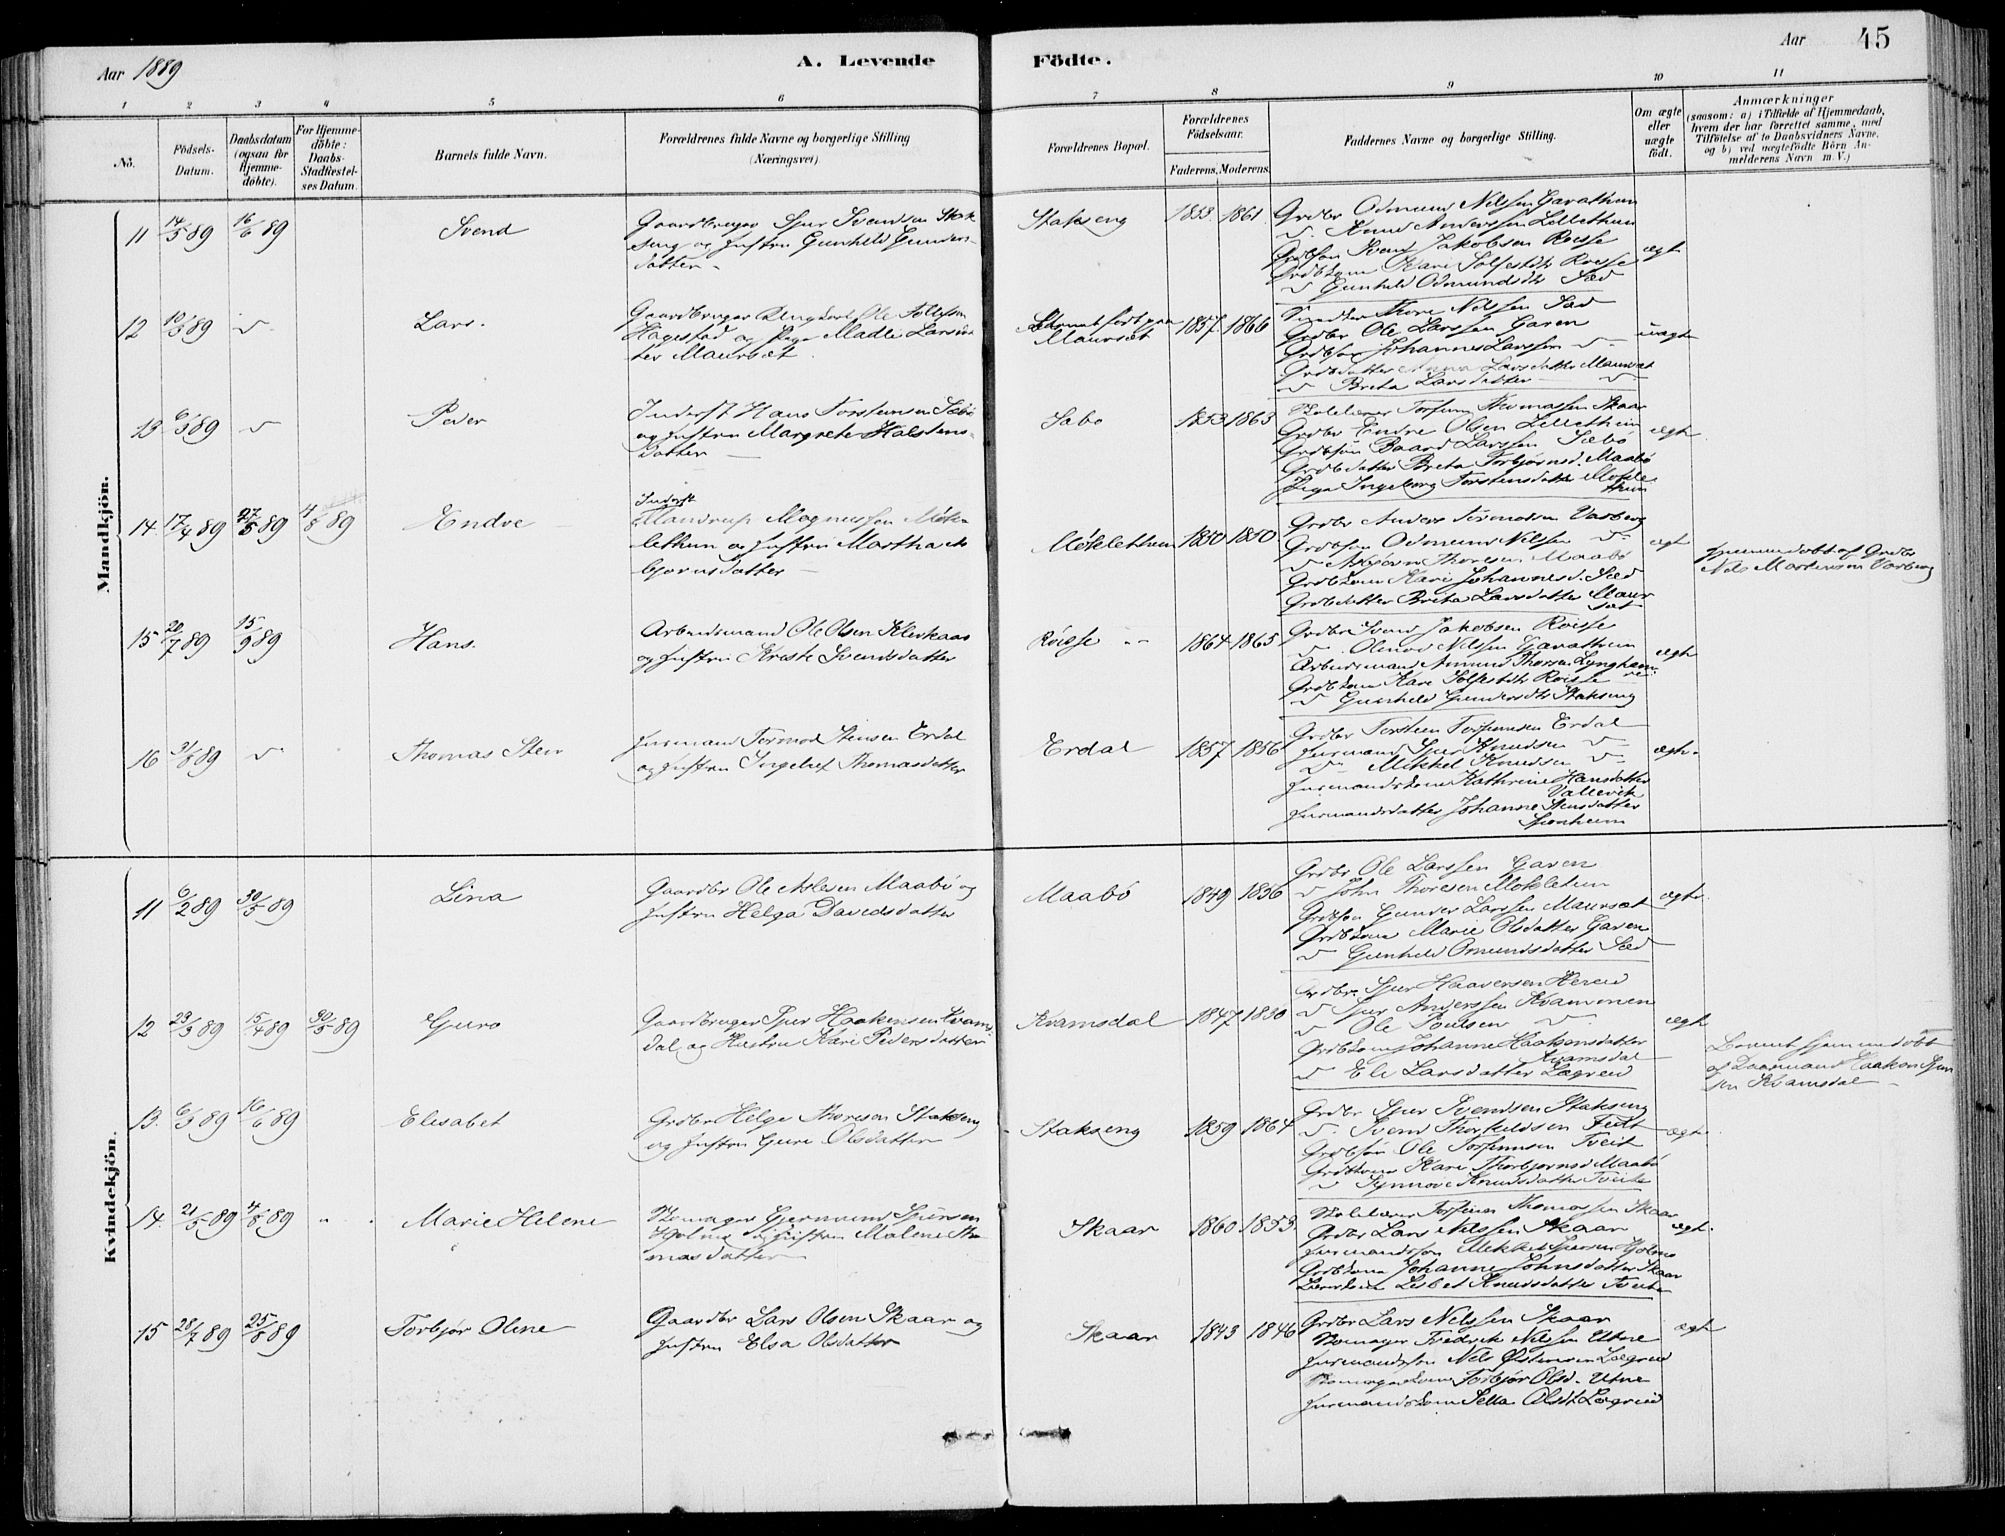 Aar 1889
A. Levende Födte.
Aar
45
1 2 3 4 5 6 7 8 9 10 11
No.
Födsels-
Datum.
Daabsdatum
(ogsaa for
hjemme-
döbte).
For Hjemme-
döbte:
Daabs-
Stadfæstel-
ses Datum.
Barnets fulde Navn.
Forældrenes fulde Navne og borgerlige Stilling
(Næringsvei)
Forældrenes Bopæl.
Forældrenes
Födselsaar.
Faderens. Moderens.
Faddernes Navne og borgerlige Stilling.
Om ægte
eller
uægte
födt.
Anmærkninger
(saasom: a) i Tilfælde af Hjemmedaab,
hvem der har forrettet samme, med
Tilföielse af to Daabsvidners Navne,
og b) ved uægtefödte Börn An-
melderens Navn m. V.)
Mandkjön.
11 14/5 89 16/6 89
Svend
Gaardbruger Sjur Svendsen Stak
seng og Hustru Gunhild Gunders-
datter
Stakseng
1853. 1861
Grdbr Odmund Nilsen Garathun
" Knud Anderssen Lillethun
Grdbsøn Svend Jakobsen Roisse
Grdbkone Kari Solfestdtr Roisse
" Gunhild Odmundsdtr Sæd
ægt
12 10/5 89 "
Lars.
Gaardbruger Ole Tollefsen
Hagestad og Pige Madli Larsdat
ter Maursæt
Barnet født paa
Maursæt
1857. 1866
Thore Nilsen Sæd
Grdbr Ole Larssen Garen
Grdbsøn Johannes Larssen "
Grdbdatter Anna Larsdatter Maursæt
" Breta Larsdatter "
uægte
13 6/5 89 "
Peder
Inderst Hans Torstensen Sæbø
og Hustru Margrete Halstens-
datter
Sæbø
1853 1863
Torfinn Thomassen Skaar
Grdbr Endre Olsen Lillethun
Grdbsøn Baard Larssen Sæbø
Grdbdatter Breta Torbjørnsd. Maabø
Pige Ingeborg Torstensdatter Møkle
thun
ægte
14. 17/4 89 27/5 89 4/8 89
Endre
Inderst
Mandrup Magnussen Møk
lethun og Hustru Martha As
bjørnsdatter
Møklethun
1850 1850
Grdbr Anders Tormodsen Varberg
Grdbsøn Odmund Nilsen "
" Asbjørn Thoresen Maabø
Grdbkone Kari Johannesd. Sæd
Grdbdatter Breta Larsdatter Maur
sæt
ægt
Hjemmedøbt af Grdbr
Nils Mortensen Varberg
15 20/7 89 15/9 89
Hans.
Arbeidsmand Ole Olsen Klevkaas
og Hustru Kraste Svendsdatter
Roisse
1864 1865
Grdbr Svend Jakobsen Roisse
" Olenes Nilsen Garathun
Arbeidsmand Amund Thorsen Lyngham
Grdbkone Kari Solfestdtr Roisse
" Gunhild Gundersdtr Stakseng
ægte
16 31/8 89 "
Thomas Stein
Husmand Tormod Stensen Erdal
og Hustru Ingeleif Thomasdatter
Erdal
1857 1856
Grdbr Torstein Torfinnsen Erdal
Husmand Sjur Knudsen "
" Mikkel Knudsen "
Husmandskone Kathrine Hansdatter
Vallevik
Husmandsdatter Johanne Stensdatter
Simenheim
ægte
Kvindekjön.
11 6/2 89 30/5 89
Lina
Gaardbr Ole Aslesen Maabø og
Hustru Helga Davidsdatter
Maabø
1849 1856
Grdbr Ole Larssen Garen
" John Thoresen Møklethun
Grdbsøn Gunder Larssen Maursæt
Grdbkone Marie Olsdatter Garen
" Gunhild Omundsdatter Sæd
ægte
12 23/3 89 15/4 89 30/5 89
Guro
Gaardbruger Sjur Haakensen Kvams
dal og Hustru Kari Pedersdatter
Kvamsdal
1847 1850
Grdbr. Sjur Haaversen Hereid
" Sjur Anderssen Kvammen
" Ole Poulsen "
Grdbkone Johanne Haakensdatter
Kvamsdal
" Eli Larsdatter Lægreid
ægt
Barnet hjemmedøbt
af Haakon Sjur
sen Kvamsdal
13. 6/5 89 16/6 89
Elisabet
Grdbr Helge Thoresen Stakseng
og Hustru Guri Olsdatter
Stakseng
1859 1864
Grdbr Sjur Svendsen Stakseng
" Svend Thorkeldssen Feet
Grdbsøn Ole Torfinnsen Tveit
Grdbkone Kari Thorbjørnsd Maabø
" Synnove Knudsdatter Tveite
ægte
14. 21/5 89 4/8 89 "
Marie Helene
Skomager Gjermund Sjursen
Hjelme og Hustru Malene Tho
masdatter
Skaar
1860 1853
Torfinn Thomassen Skaar
Grdbr Lars Nilssen Skaar
Husmandssøn Mikkel Sjursen Hjelme
Grdbkone Johanne Johnsdatter Skaar
Lisbet Knudsdatter Tveite
ægt.
15 28/7 89 25/8 89
Torbjør Oline
Gaardbr Lars Olsen Skaar og
Hustru Elsa Olsdatter
Skaar
1843 1846
Grdbr Lars Nilssen Skaar
Skomager Fredrik Nilsen Utne
Husmandssøn Nils Østensen Lægreid
Skomagerkone Torbjør Olsd. Utne
Husmandskone Sella Olsdt Lægreid
ægt